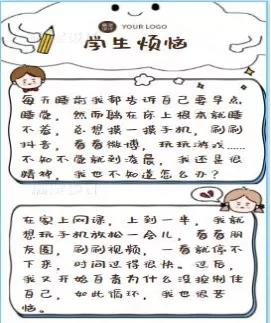 YOUR LOGO
学生烦恼
每天睡前我都告诉自己要早点
睡觉，然而躺在床上根本就睡
不着，总想摸一摸手机，刷刷
抖音，看看微博，玩玩游戏……
不知不觉就到凌晨，我还是很
精神，我也不知道怎么办？
在家上网课，上到一半，我就
想玩手机放松一会儿，看看朋
友圈，刷刷视频，一看就停不
下来，时间过得很快。过后，
我又开始自责为什么没控制住
自己，如此循环，我也很苦
恼。